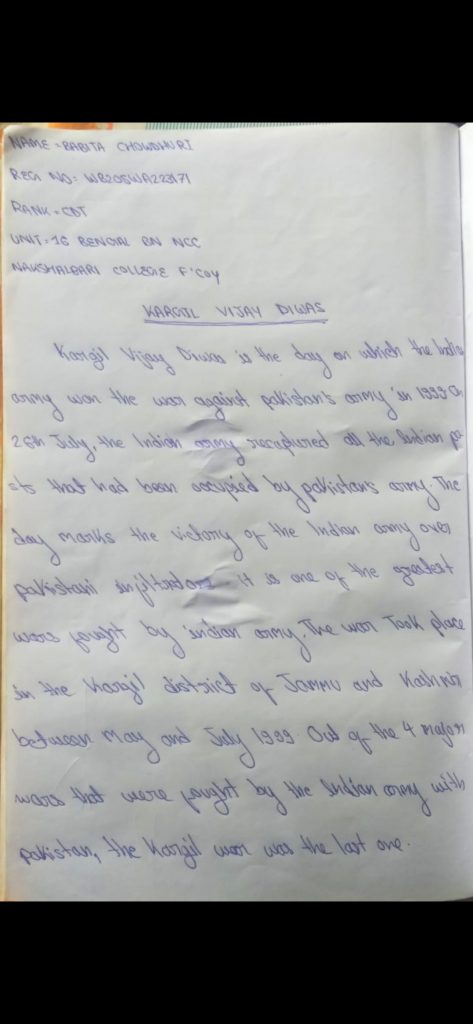 NAME = BABITA CHOWDHURI
REGI NO: WB20SWA223171
RANK = CDT
UNIT: 16 BENGAL BN NCC
NAKSHALBARI COLLEGE F'Coy
KARGIL VIJAY DIWAS
Kargil Vijay Diwas is the day on which the Indian
army won the war against pakistan's army in 1999 On
26th July, the Indian army recaptured all the Indian po
sts that had been occupied by pakistan's army. The
day marks the victory of the Indian army over
pakistani infiltrators. it is one of the greatest
wars fought by indian army. The war Took place
in the Kargil district of Jammu and Kashmir
between May and July 1999. Out of the 4 major
wars that were fought by the Indian army with
pakistan, the Kargil war was the last one.